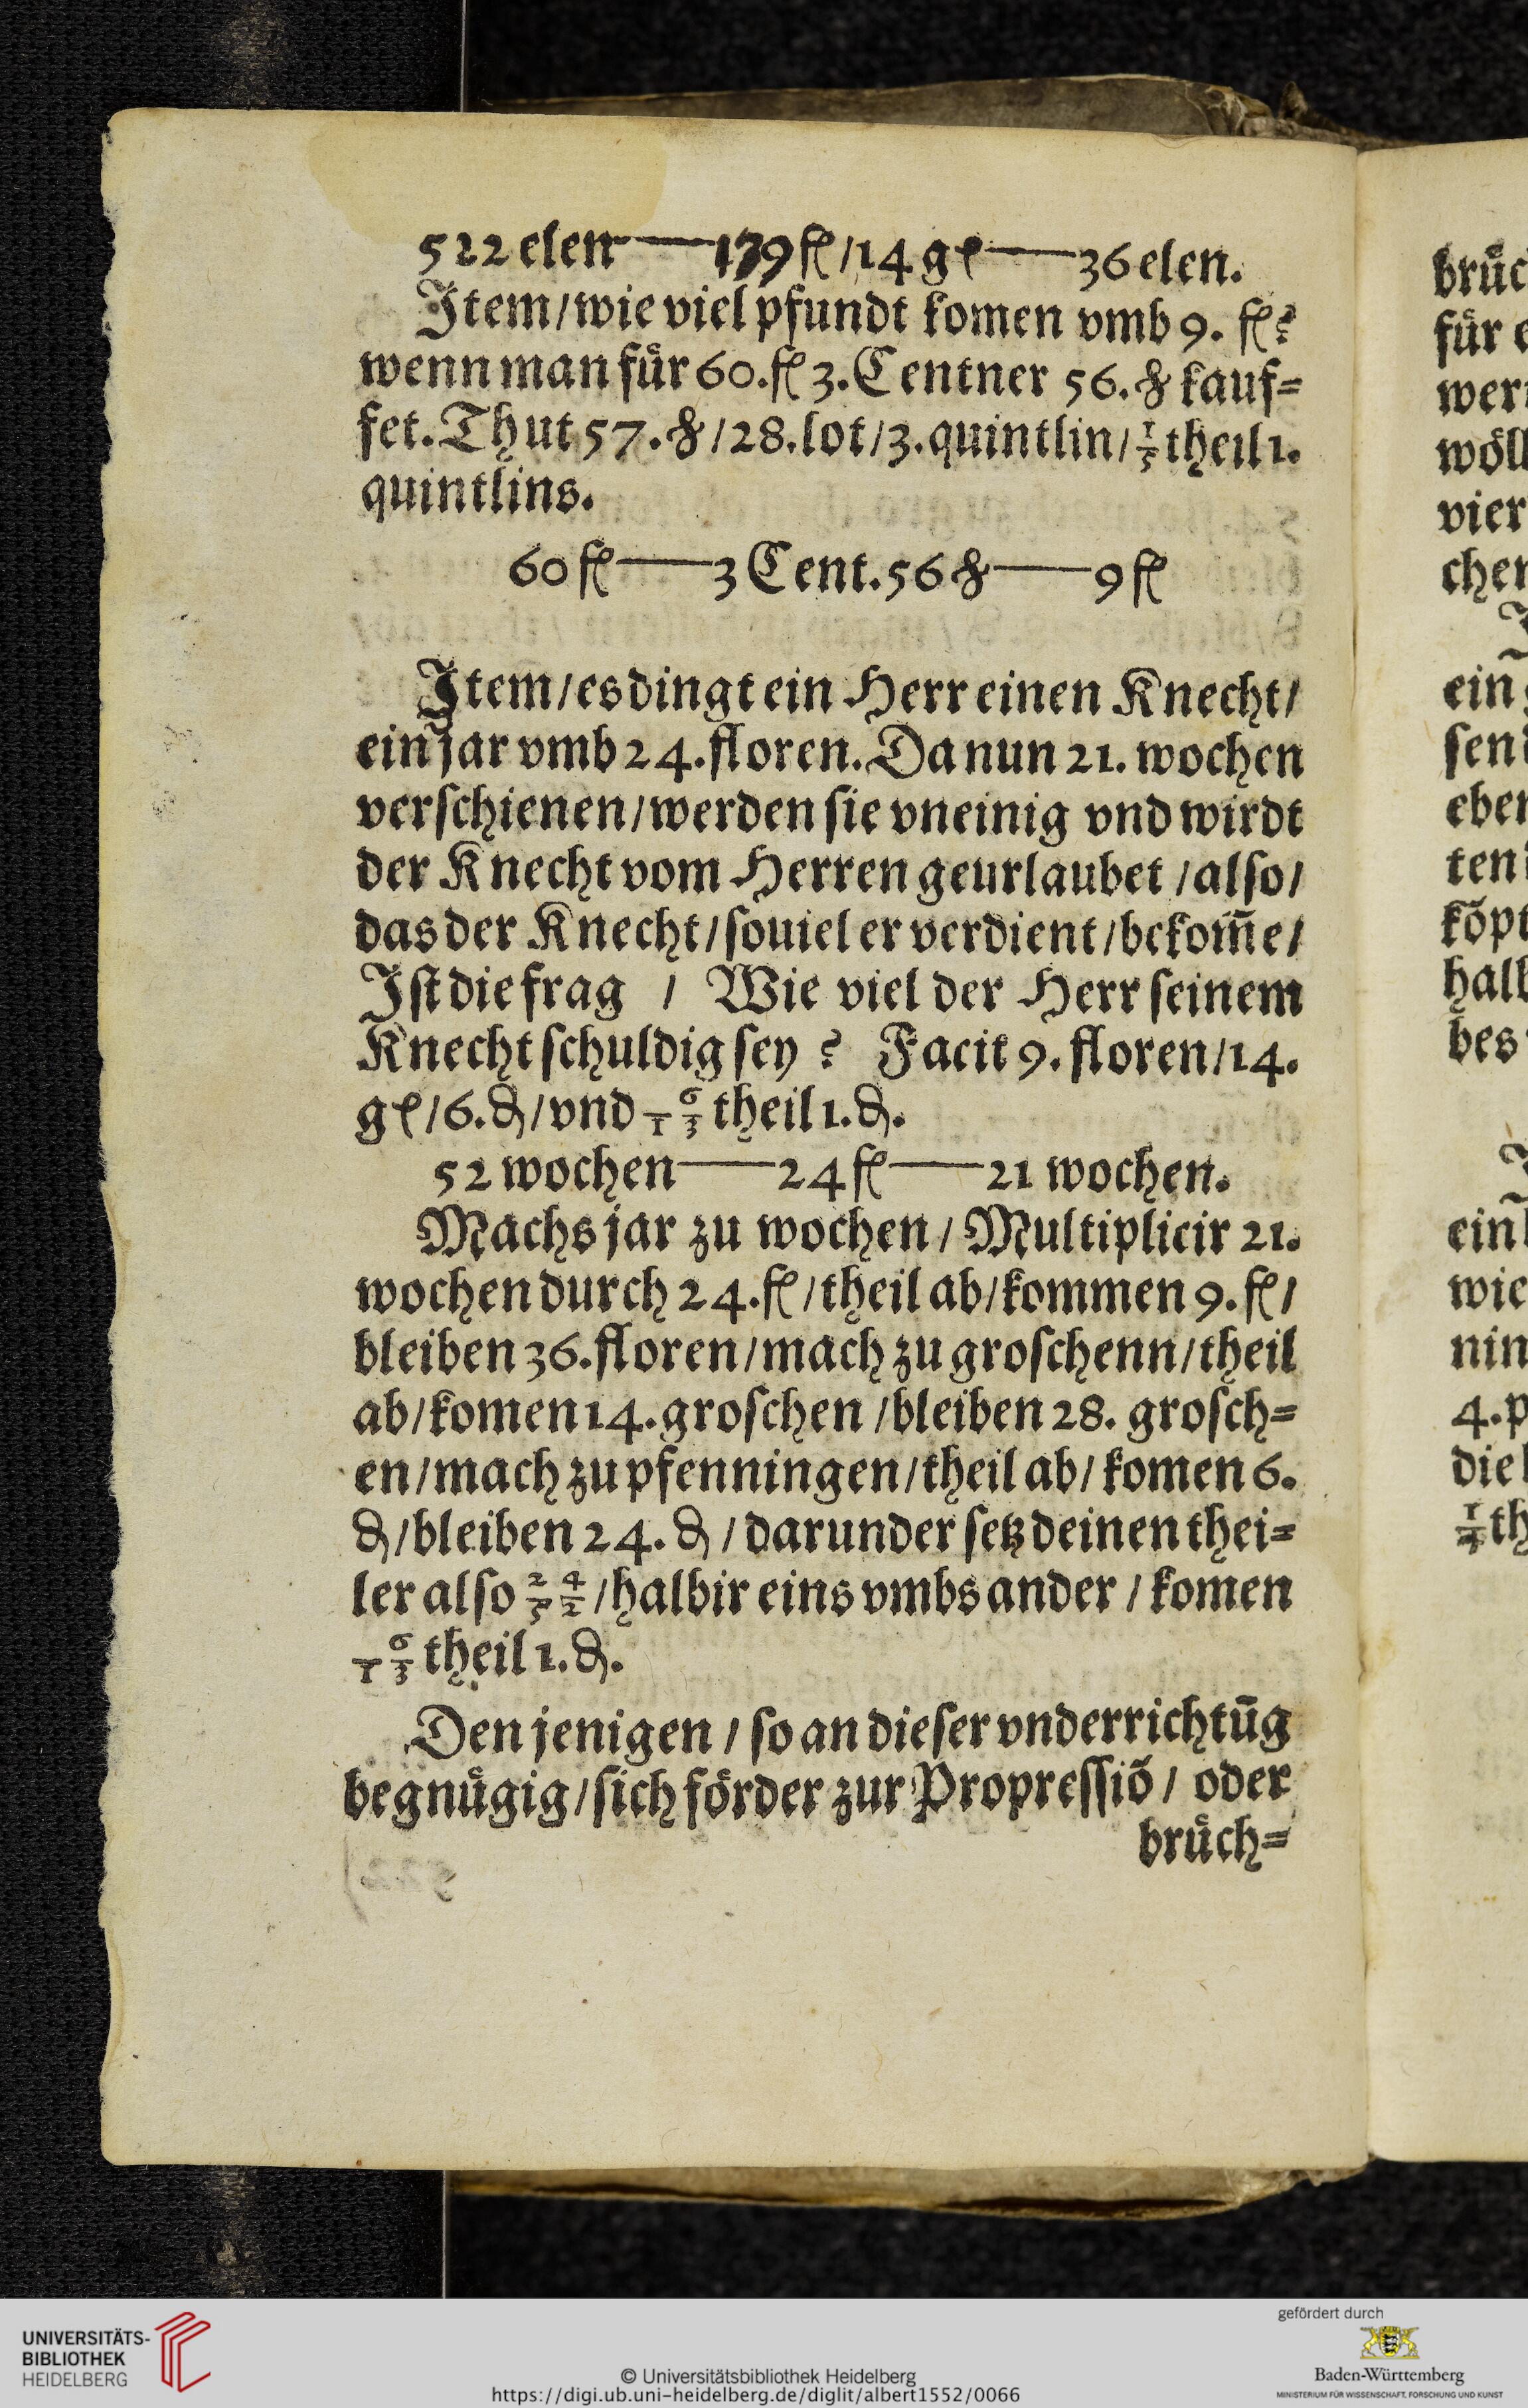 522 elen——139 fl/14 gl——36 elen.
Item/wie viel pfundt komen vmb 9. fl?
wenn man fuͤr 60. fl 3. Centner 56. ℔ kauf=
fet. Thut 57. ℔/28. lot/3. quintlin/ 1/5 theil 1.
quintlins.
60 fl——3 Cent. 56 ℔——9 fl
Item/es dingt ein Herr einen Knecht/
ein jar vmb 24. floren. Da nun 21. wochen
verschienen/werden sie vneinig vnd wirdt
der Knecht vom Herren geurlaubet/also/
das der Knecht/souiel er verdient/bekom̃e/
Ist die frag / Wie viel der Herr seinem
Knecht schuldig sey? Facit 9. floren/14.
gl/6. ₰/vnd 6/13 theil 1. ₰.
52 wochen——24 fl——21 wochen.
Machs jar zu wochen/Multiplicir 21.
wochen durch 24. fl/theil ab/kommen 9. fl/
bleiben 36. floren/mach zu groschenn/theil
ab/komen 14. groschen/bleiben 28. grosch=
en/mach zu pfenningen/theil ab/komen 6.
₰/bleiben 24. ₰/darunder setz deinen thei=
ler also 24/52/halbir eins vmbs ander/komen
6/13 theil 1. ₰.
Den jenigen/so an dieser vnderrichtūg
begnuͤgig/sich foͤrder zur Propressiō/oder
bruͤch=
bruͤc
fuͤr e
wer
woͤll
vier
cher
ein
sen
eber
ten
koͤpt
halb
bes
ein
wie
nin
4. p
die
th
UNIVERSITÄTS-
BIBLIOTHEK
HEIDELBERG
© Universitätsbibliothek Heidelberg
https://digi.ub.uni-heidelberg.de/diglit/albert1552/0066
gefördert durch
Baden-Württemberg
MINISTERIUM FÜR WISSENSCHAFT, FORSCHUNG UND KUNST